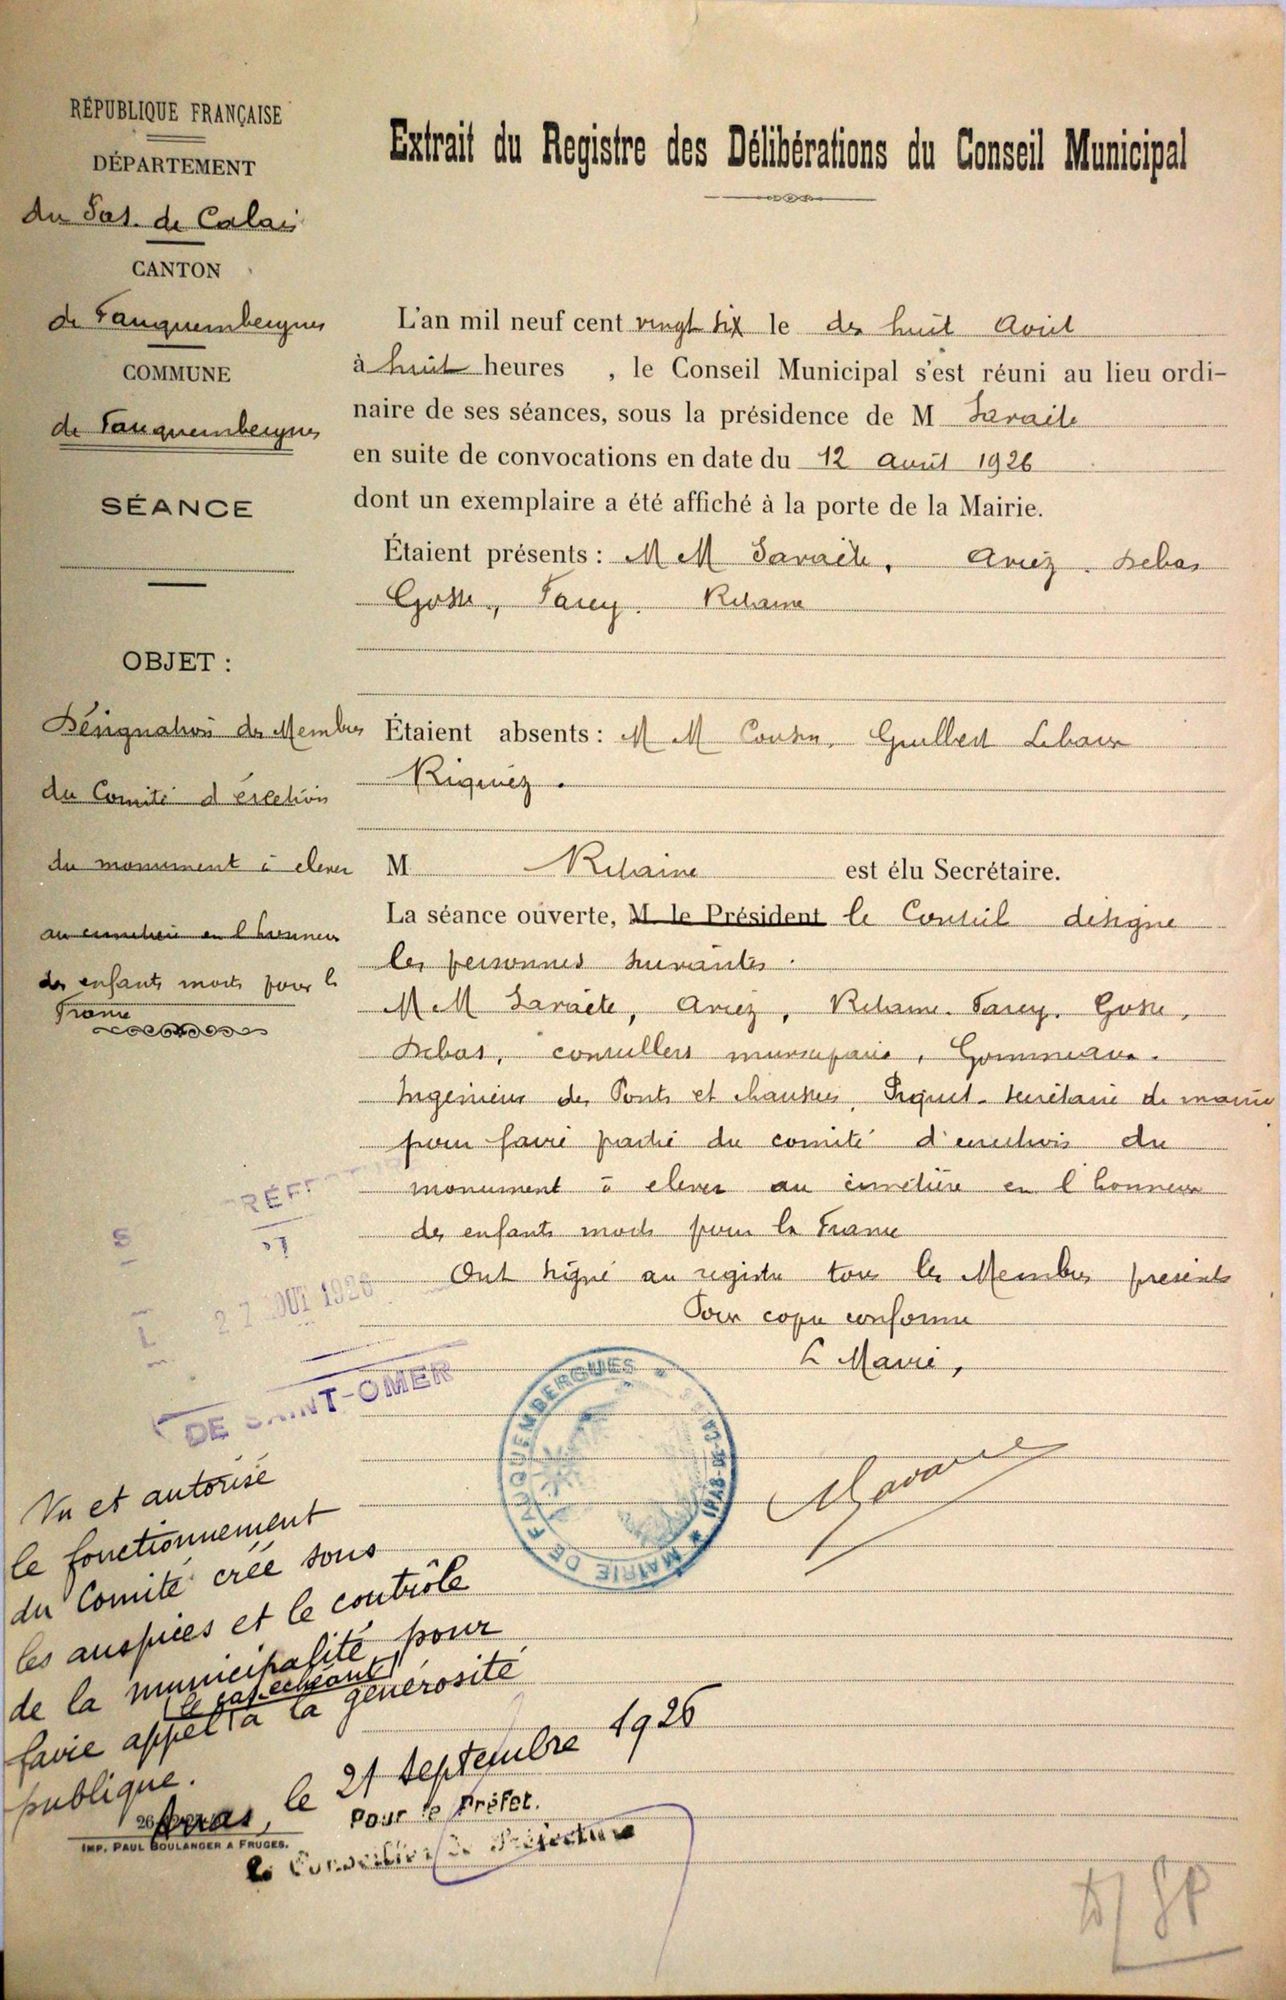 RÉPUBLIQUE FRANÇAISE
DÉPARTEMENT
du Pas. de Calais
CANTON
de Fauquembergues
COMMUNE
de Fauquembergues
SÉANCE
OBJET :
Désignation des Membres
du Comité d'érection
du monument à elever
au cimetière en l'honneur
des enfants morts pour la
France
Extrait du Registre des Délibérations du Conseil Municipal
L'an mil neuf cent vingt six le dix huit Août
à huit heures , le Conseil Municipal s'est réuni au lieu ordi-
naire de ses séances, sous la présidence de M
en suite de convocations en date du 12 Août 1926
dont un exemplaire a été affiché à la porte de la Mairie.
Étaient présents : M M Ariez. Debas
Gosse, Farcy. Relaine
Étaient absents : M M Cousin, Guilbert
Riquiez.
M Relaine est élu Secrétaire.
La séance ouverte, M. le Président le Conseil désigne
les personnes suivantes.
M M Ariez, Relaine. Farcy. Gosse,
Debas, conseillers municipaux, Gommeaux.
Ingénieur des Ponts et chaussées, Piquet. secrétaire de mairie
pour faire partie du comité d'érection du
monument à elever au cimetière en l'honneur
des enfants morts pour la France
Ont signé au registre tous les Membres présents
Pour copie conforme
Le Maire,
MAIRIE DE FAUQUEMBERGUES * (PAS-DE-CA
27 AOUT 1926
DE SAINT-OMER
Vu et autorisé
le fonctionnement
du Comité créé sous
les auspices et le contrôle
de la municipalité pour
(le cas échéant)
faire appel à la générosité
publique.
Arras, le 21 Septembre 1926
Pour le Préfet.
Le Conseiller de Préfecture
IMP. PAUL BOULANGER A FRUGES.